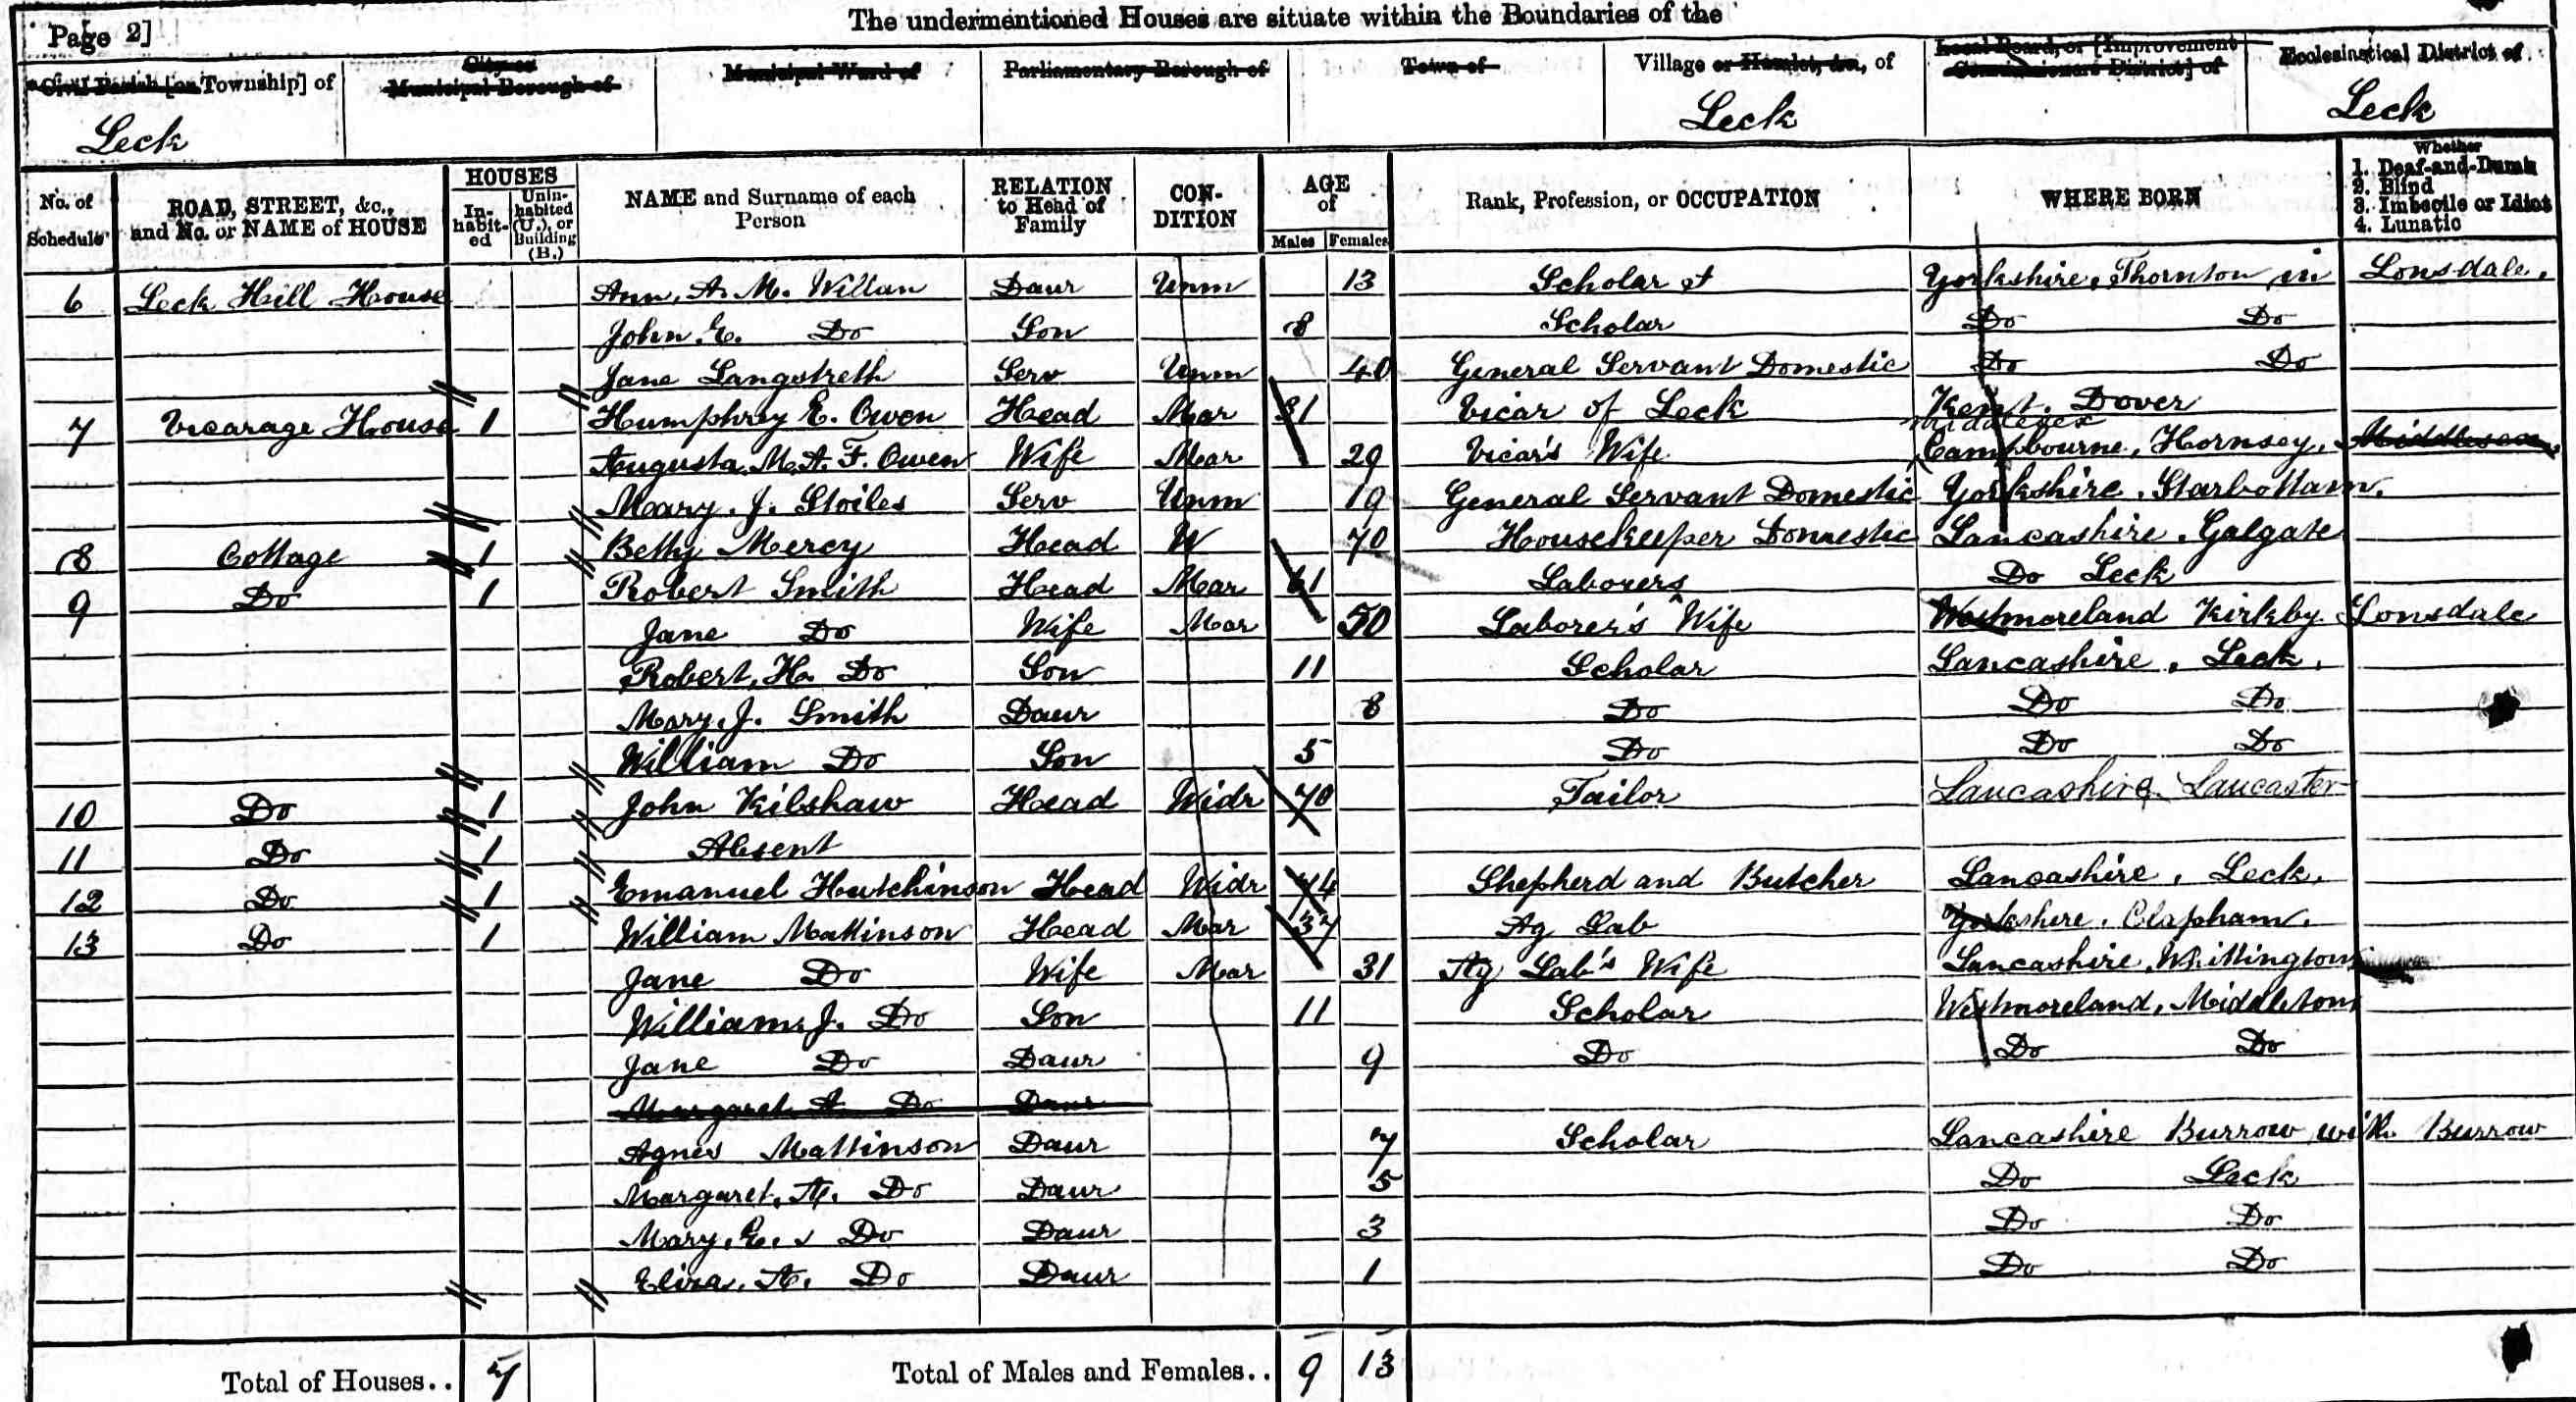 The undermentioned Houses are situate within the Boundaries of the
Page 2]
Civil Parish [or Township] of
City or Municipal Borough of
Municipal Ward of
Parliamentary Borough of
Town of
Village or Hamlet, &c., of
Local Board, or [Improvement Commissioners District] of
Ecclesiastical District of
Leck Leck Leck
No. of Schedule
ROAD, STREET, &c., and No. or NAME of HOUSE
HOUSES
In-habit-ed
Unin-habited (U.), or Building (B.)
NAME and Surname of each Person
RELATION to Head of Family
CON-DITION
AGE of
Males Females
Rank, Profession, or OCCUPATION
WHERE BORN
Whether
1. Deaf-and-Dumb
2. Blind
3. Imbecile or Idiot
4. Lunatic
6 Leck Hill House Ann. A. M. Willan Daur Unm 13 Scholar Yorkshire, Thornton in Lonsdale.
John. E. Do Son 8 Scholar Do Do
Jane Langstreth Serv Unm 40 General Servant Domestic Do Do
7 Vicarage House 1 Humphrey E. Owen Head Mar 31 Vicar of Leck Kent. Dover
Middlesex
Augusta. M. A. F. Owen Wife Mar 29 Vicar's Wife Campbourne, Hornsey, Middlesex
Mary. J. Stoiles Serv Unm 19 General Servant Domestic Yorkshire. Starbottam.
8 Cottage 1 Betty Mercy Head W 70 Housekeeper Domestic Lancashire. Galgate
9 Do 1 Robert Smith Head Mar 61 Laborers Do Leck
Jane Do Wife Mar 50 Laborer's Wife Westmoreland Kirkby Lonsdale
Robert, H. Do Son 11 Scholar Lancashire. Leck.
Mary. J. Smith Daur 8 Do Do Do
William Do Son 5 Do Do Do
10 Do 1 John Kilshaw Head Widr 70 Tailor Lancashire Lancaster
11 Do 1 Absent
12 Do 1 Emanuel Hutchinson Head Widr 74 Shepherd and Butcher Lancashire, Leck.
13 Do 1 William Mattinson Head Mar 37 Ag Lab Yorkshire. Clapham.
Jane Do Wife Mar 31 Ag Lab's Wife Lancashire. Whittington
William. J. Do Son 11 Scholar Westmoreland, Middleton
Jane Do Daur 9 Do Do Do
Margaret A. Do Daur
Agnes Mattinson Daur 7 Scholar Lancashire Burrow with Burrow
Margaret. A. Do Daur 5 Do Leck
Mary. E. Do Daur 3 Do Do
Eliza. A. Do Daur 1 Do Do
Total of Houses.. 7 Total of Males and Females.. 9 13